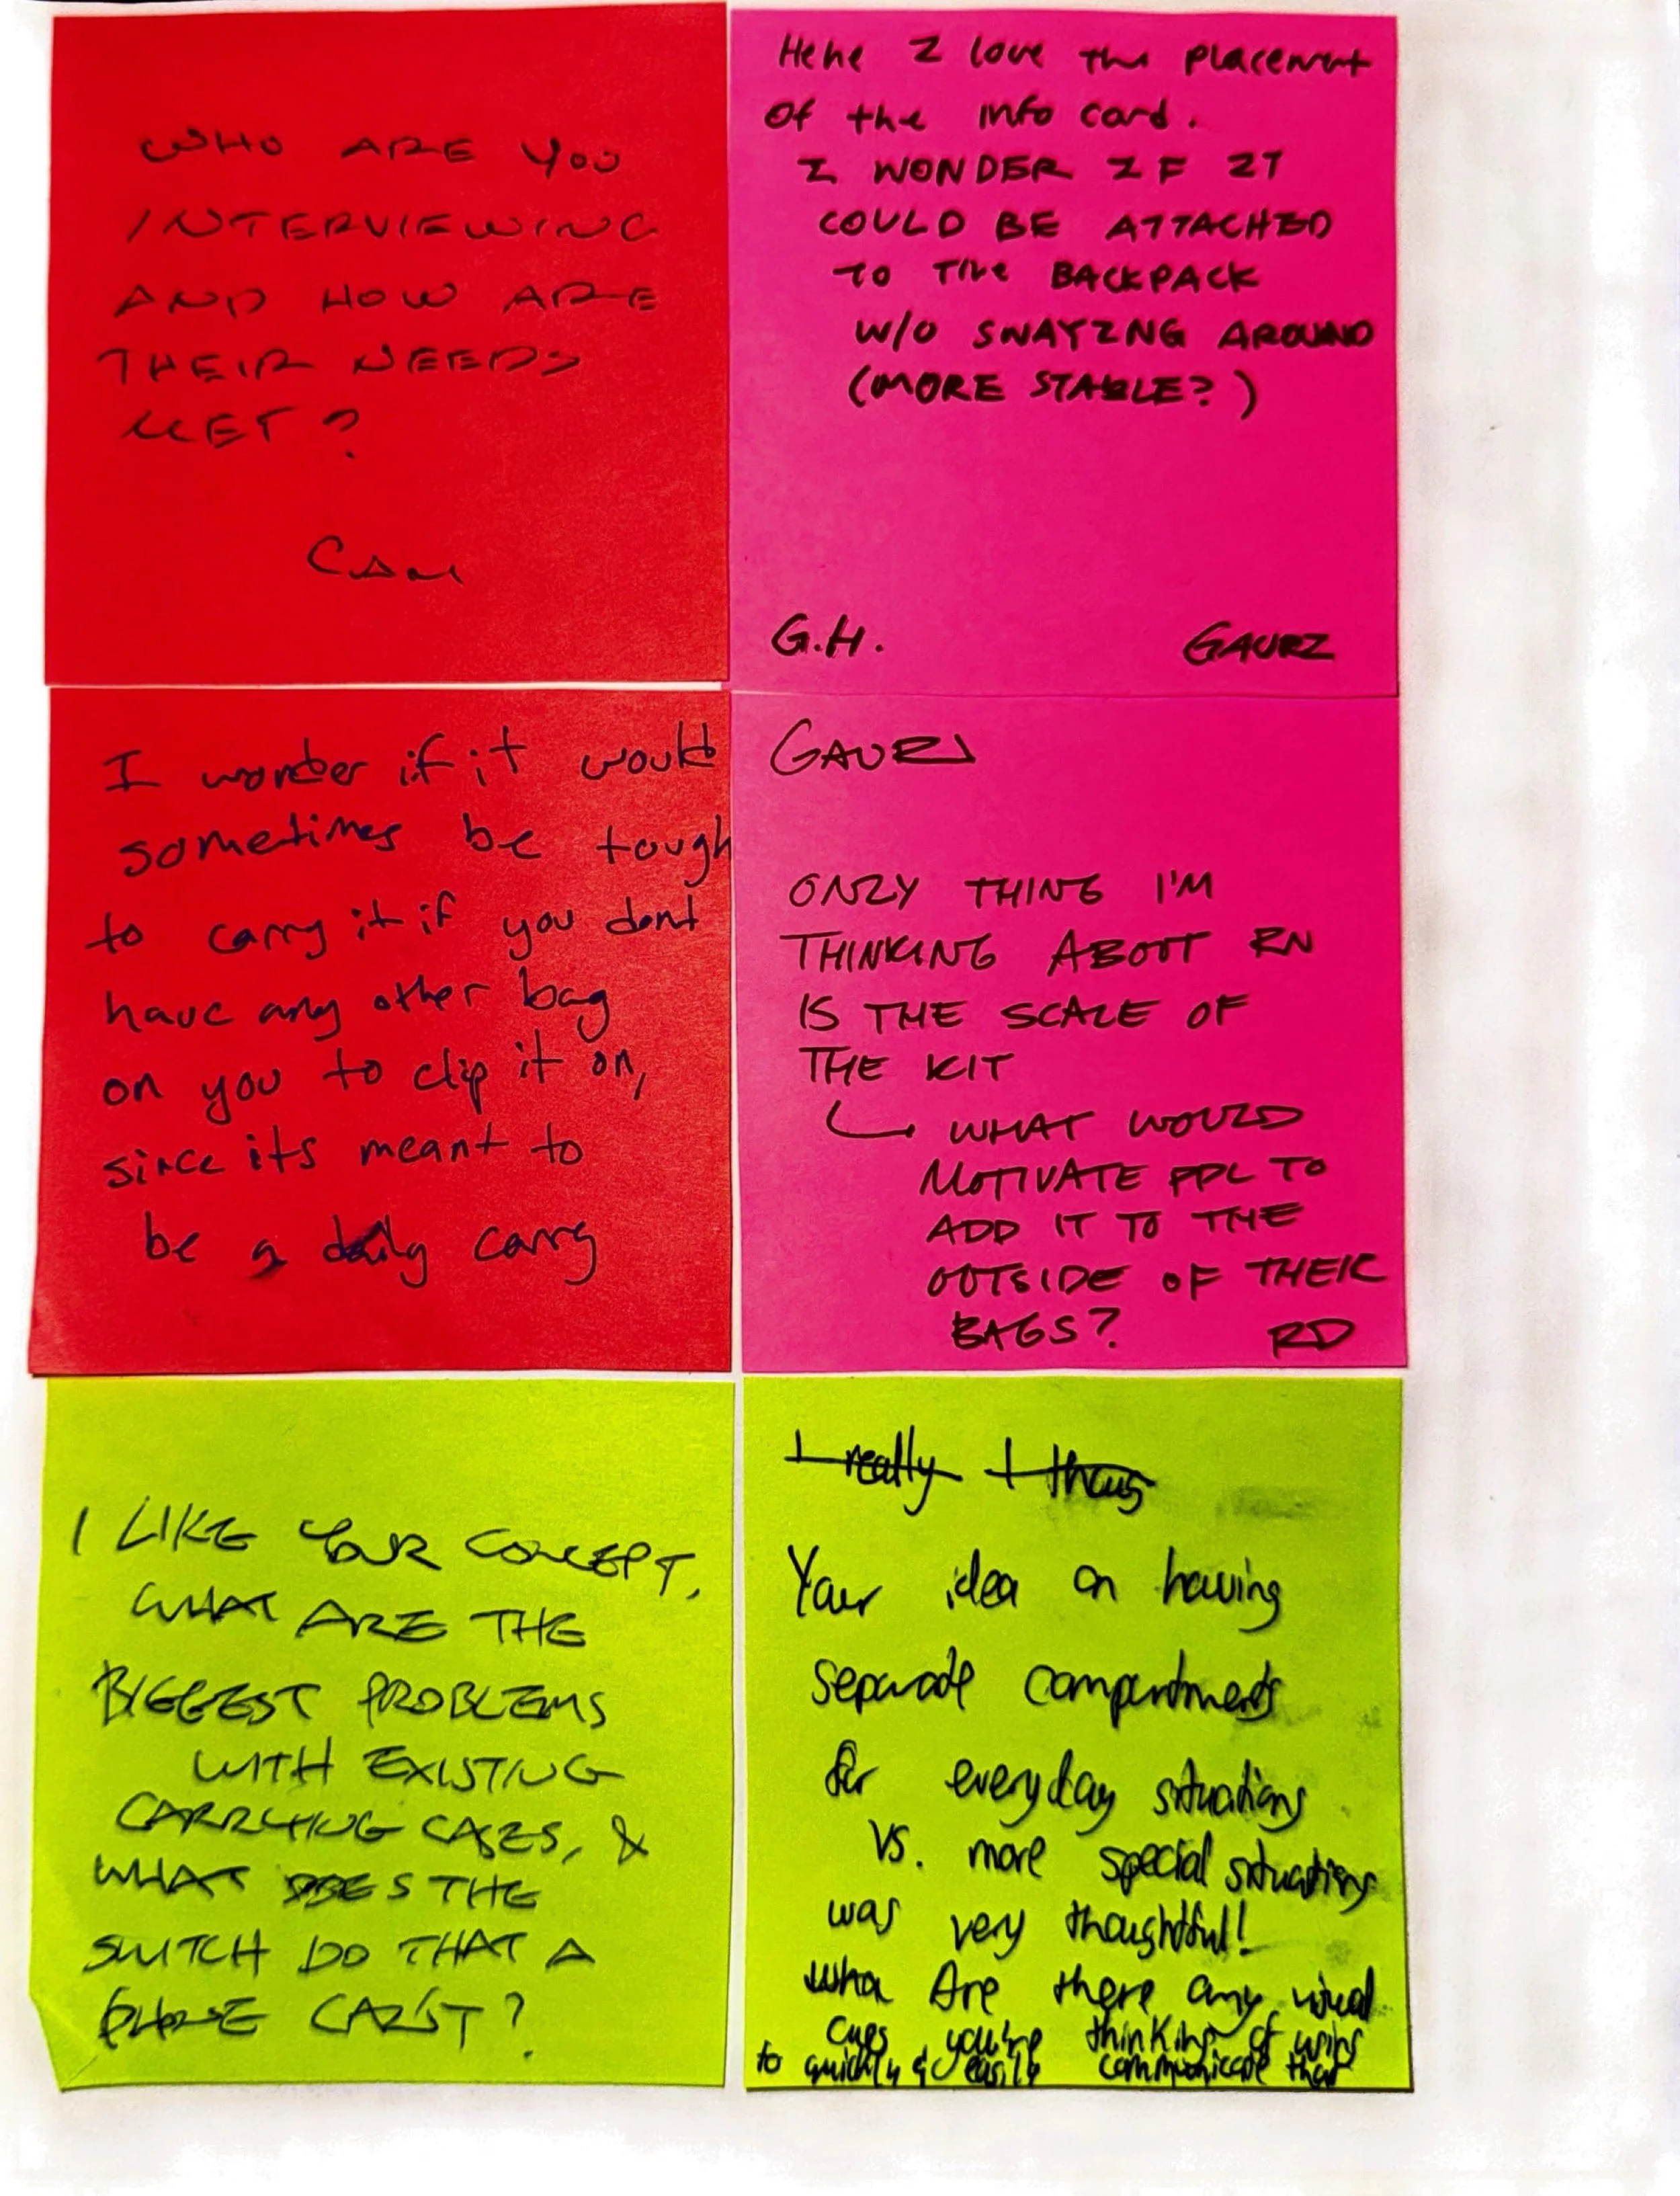 WHO ARE YOU
INTERVIEWING
AND HOW ARE
THEIR NEEDS
MET?
CAM
Hehe I love the placement
of the info card.
I WONDER IF IT
COULD BE ATTACHED
TO THE BACKPACK
W/O SWAYING AROUND
(MORE STABLE?)
G.H.
GAURI
I wonder if it would
sometimes be tough
to carry it if you dont
have any other bag
on you to clip it on,
since its meant to
be a daily carry
GAURI
ONLY THING I'M
THINKING ABOUT RN
IS THE SCALE OF
THE KIT
WHAT WOULD
MOTIVATE PPL TO
ADD IT TO THE
OUTSIDE OF THEIR
BAGS?
RD
I LIKE YOUR CONCEPT,
WHAT ARE THE
BIGGEST PROBLEMS
WITH EXISTING
CARRYING CASES, &
WHAT DOES THE
SWITCH DO THAT A
CAN'T?
I really I thoug
Your idea on having
separate compartments
for everyday situations
vs. more special situations
was very thoughtful!
Are there any visual
cues you're thinking of using
to quickly & easily communicate that